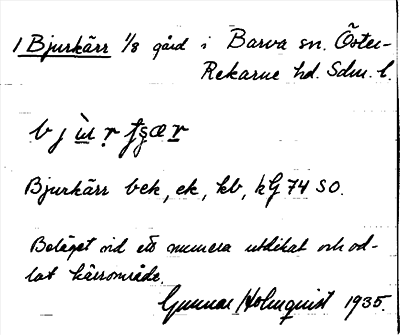 1 Bjurkärr 1/8 gård i Barva sn. Öster-
Rekarne hd. Sdm. l.
Bjurkärr bek, ek, kb, kG 74 SO.
Beläget vid ett numera utdikat och od-
lat kärrområde.
Gunnar Holmquist 1935.